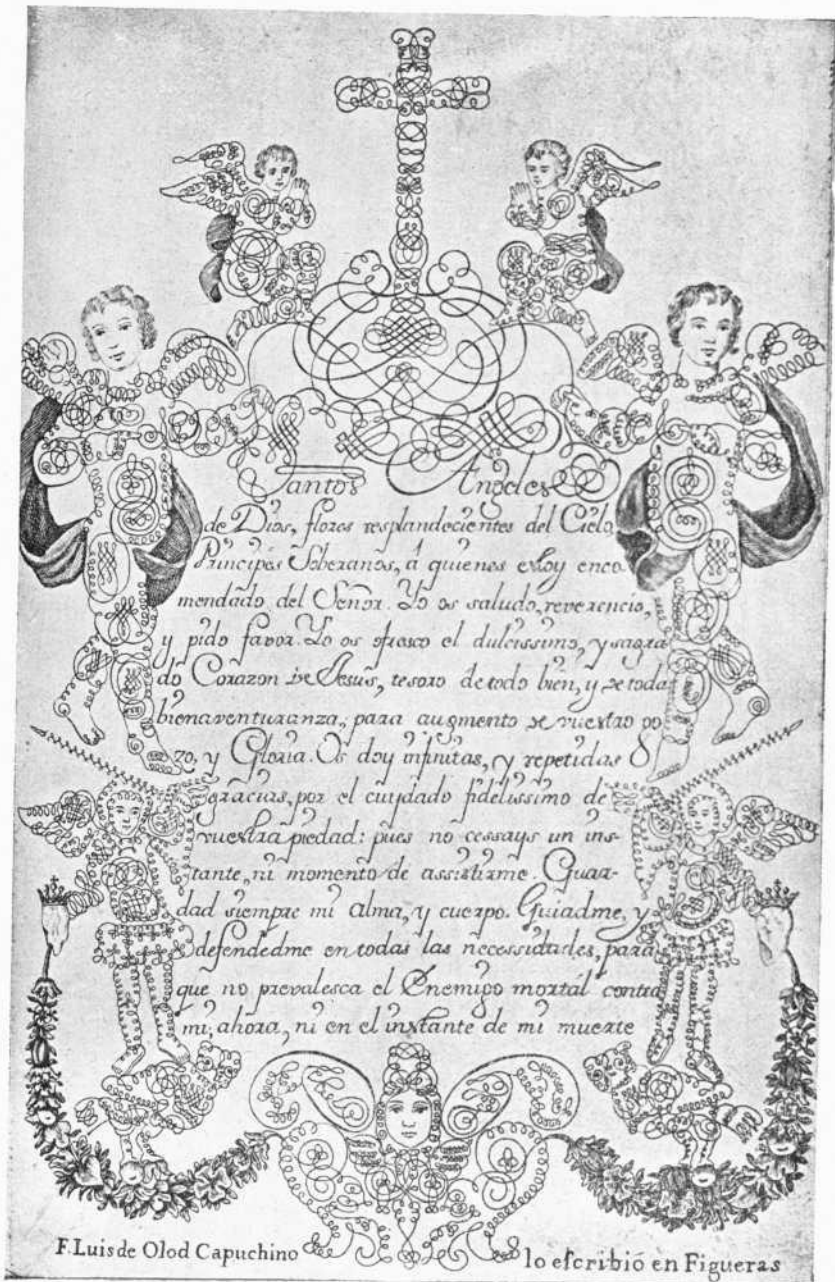 Santos Angeles
de Dios, flores resplandecientes del Cielo,
Principes Soberanos, á quienes estoy enco
mendado del Señor. Yo os saludo, reverencio,
y pido favor. Yo os ofresco el dulcissimo, y sagra
do Corazon de Jesus, tesoro de todo bien, y de toda
bienaventuranza, para augmento de vuestro go
zo, y Gloria. Os doy infinitas, y repetidas
gracias, por el cuydado fidelissimo de
vuestra piedad: pues no cessays un ins-
tante, ni momento de assistirme. Guar-
dad siempre mi Alma, y cuerpo. Guiadme, y
defendedme en todas las necessidades, para
que no prevalesca el Enemigo mortál contra
mi, ahora, ni en el instante de mi muerte
F. Luis de Olod Capuchino lo escribió en Figueras